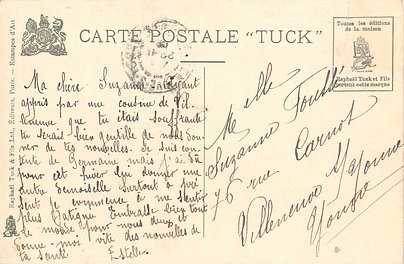 CARTE POSTALE "TUCK"
Toutes les éditions
de la maison
Raphaël Tuck et Fils
portent cette marque
Raphaël Tuck & Fils Ltd., Éditeurs, Paris. - Estampes d'Art
Ma chère Suzanne ayant
appris par une cousine de Vil-
leneuve que tu étais souffrante
tu serais bien gentille de nous donner
de tes nouvelles. Je suis con-
tente de Germaine mais j'ai dû
pour cet hiver lui donner une
autre demoiselle Surtout à pré-
sent je commence à me sentir
plus fatiguée Embrasse bien tout
le monde pour nous deux et
donne-moi vite des nouvelles de
ta santé Estelle.
Melle
Suzanne
76 rue Carnot
Villeneuve s/ Yonne
Yonne